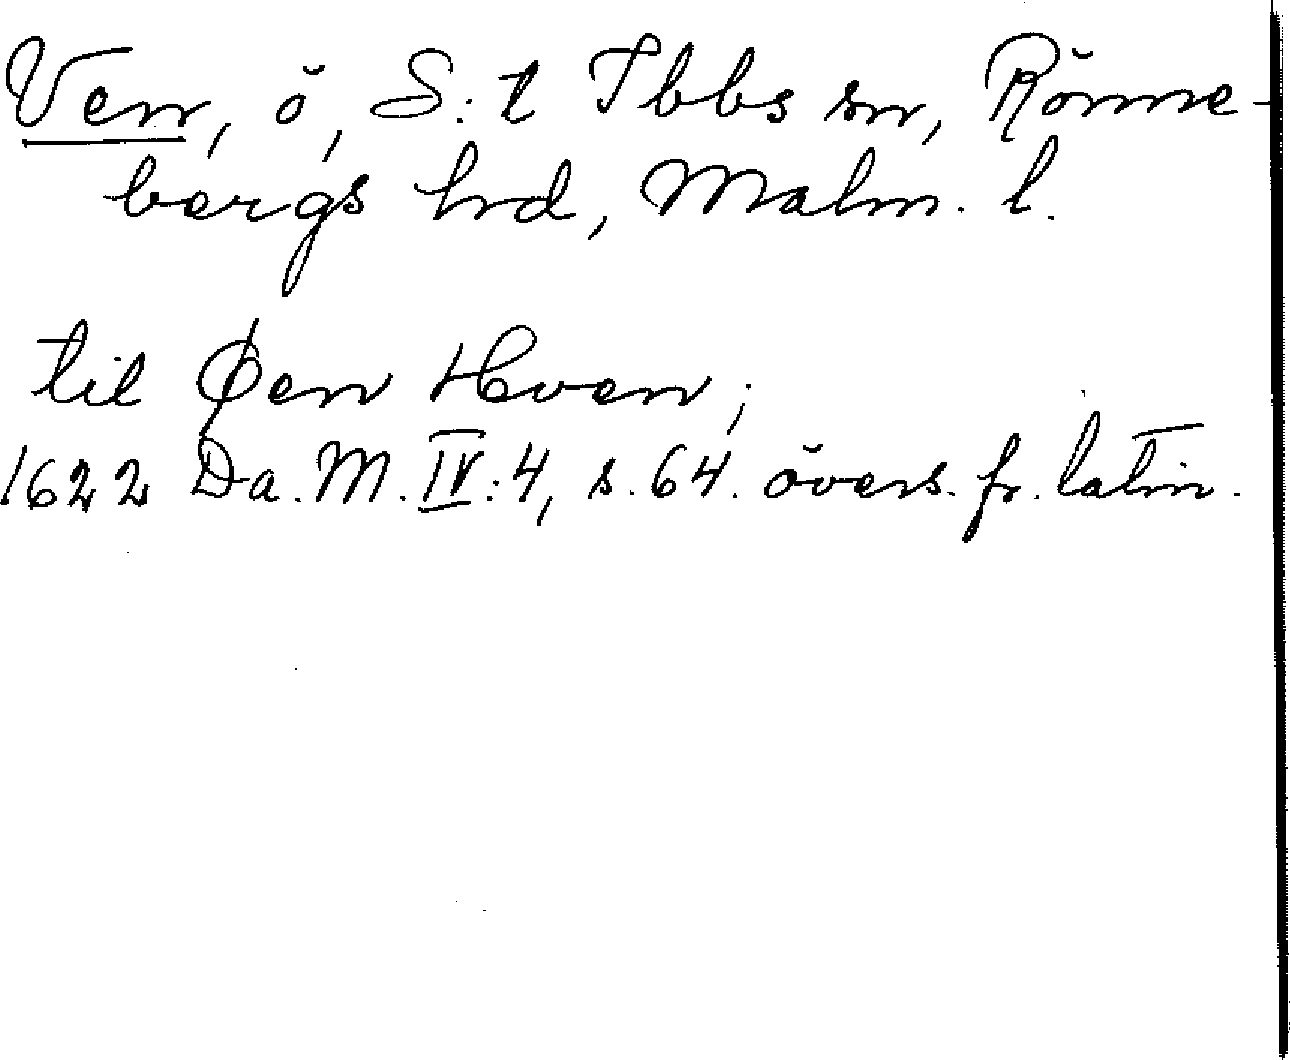 Ven, ö, S:t Ibbs sn, Rönne-
bergs hrd, Malm. l.
til Øen Hven;
1622 Da. M. IV:4, s. 64. övers. fr. latin.